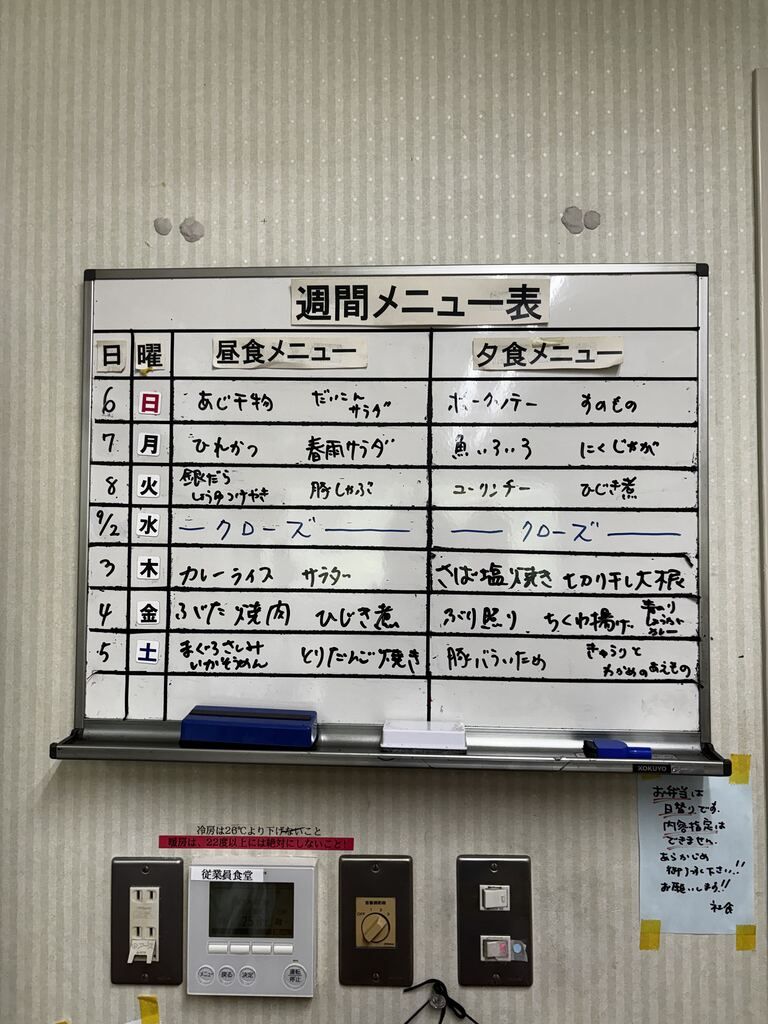 週間メニュー表
日 曜 昼食メニュー 夕食メニュー
6 日 あじ干物 だいこんサラダ ポークソテー すのもの
7 月 ひれかつ 春雨サラダ 魚いろいろ にくじゃが
8 火 銀だらしょうゆつけやき 豚しゃぶ ユーリンチー ひじき煮
9/2 水 ークローズー ークローズー
3 木 カレーライス サラダ さば塩焼き 切り干し大根
4 金 ぶた焼肉 ひじき煮 ぶり照り ちくわ揚げ カレー
5 土 まぐろさしみ いかそうめん とりだんご焼き 豚バラいため きゅうりとわかめのあえもの
KOKUYO
お弁当は
日替りです。
内容指定は
できません。
あらかじめ
御了承下さい!!
お願いします!!
社食
冷房は26℃より下げないこと
暖房は、22度以上には絶対にしないこと!
従業員食堂
メニュー 戻る 決定 運転/停止
OFF 1 2 3